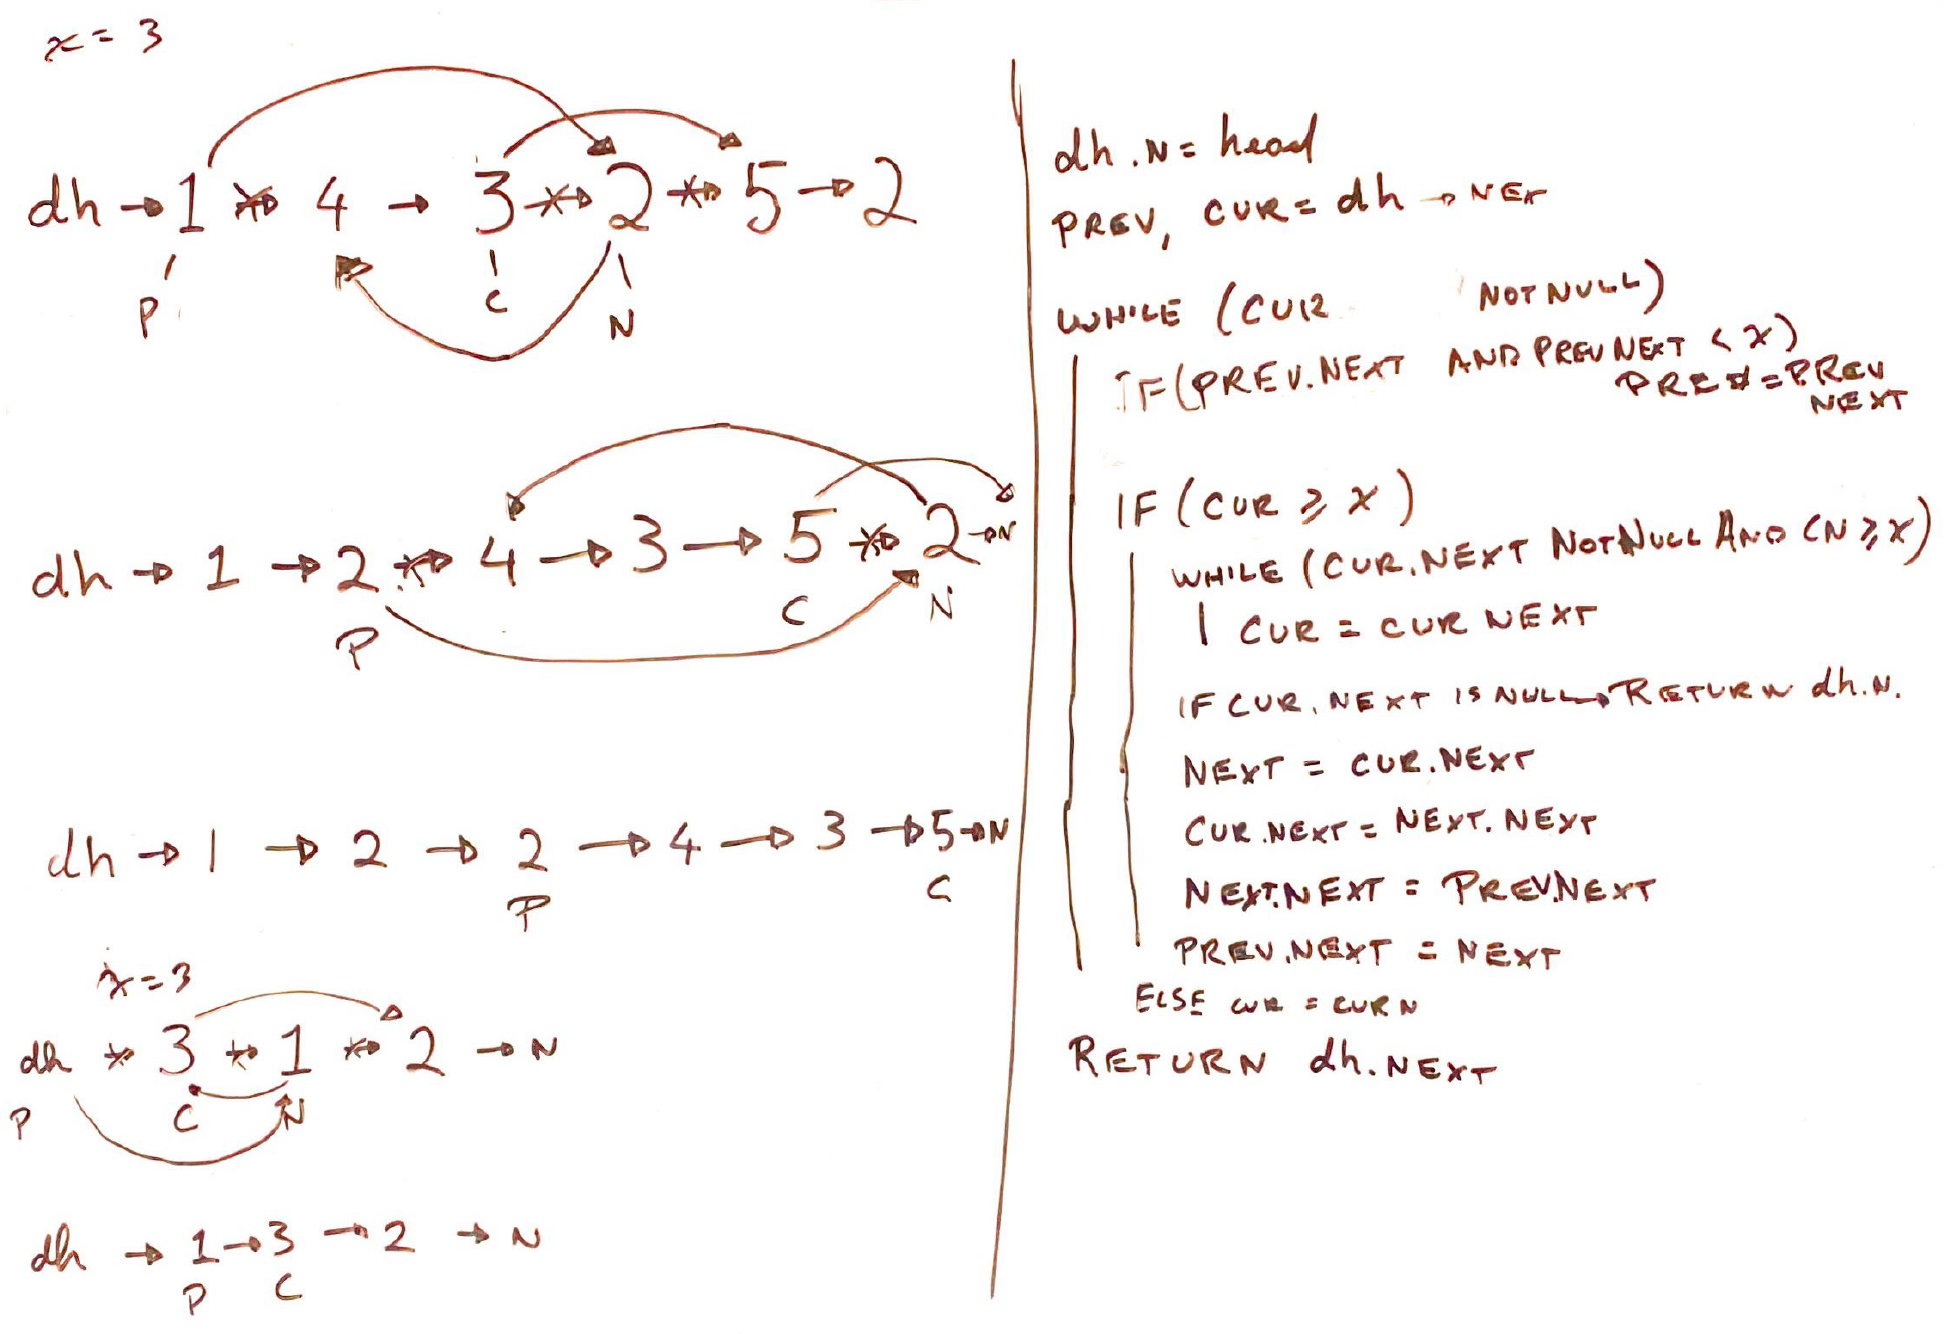 x = 3
dh → 1 → 4 → 3 → 2 → 5 → 2
P C N
dh → 1 → 2 → 4 → 3 → 5 → 2 → N
P C N
dh → 1 → 2 → 2 → 4 → 3 → 5 → N
P C
x = 3
dh → 3 → 1 → 2 → N
P C N
dh → 1 → 3 → 2 → N
P C
dh.N = head
PREV, CUR = dh → NEXT
WHILE (CUR NOT NULL)
IF (PREV.NEXT AND PREV NEXT < X)
PREV = PREV
NEXT
IF (CUR ≥ X)
WHILE (CUR.NEXT NOT NULL AND (N ≥ X)
CUR = CUR NEXT
IF CUR.NEXT IS NULL → RETURN dh.N.
NEXT = CUR.NEXT
CUR.NEXT = NEXT.NEXT
NEXT.NEXT = PREV.NEXT
PREV.NEXT = NEXT
ELSE CUR = CUR N
RETURN dh.NEXT